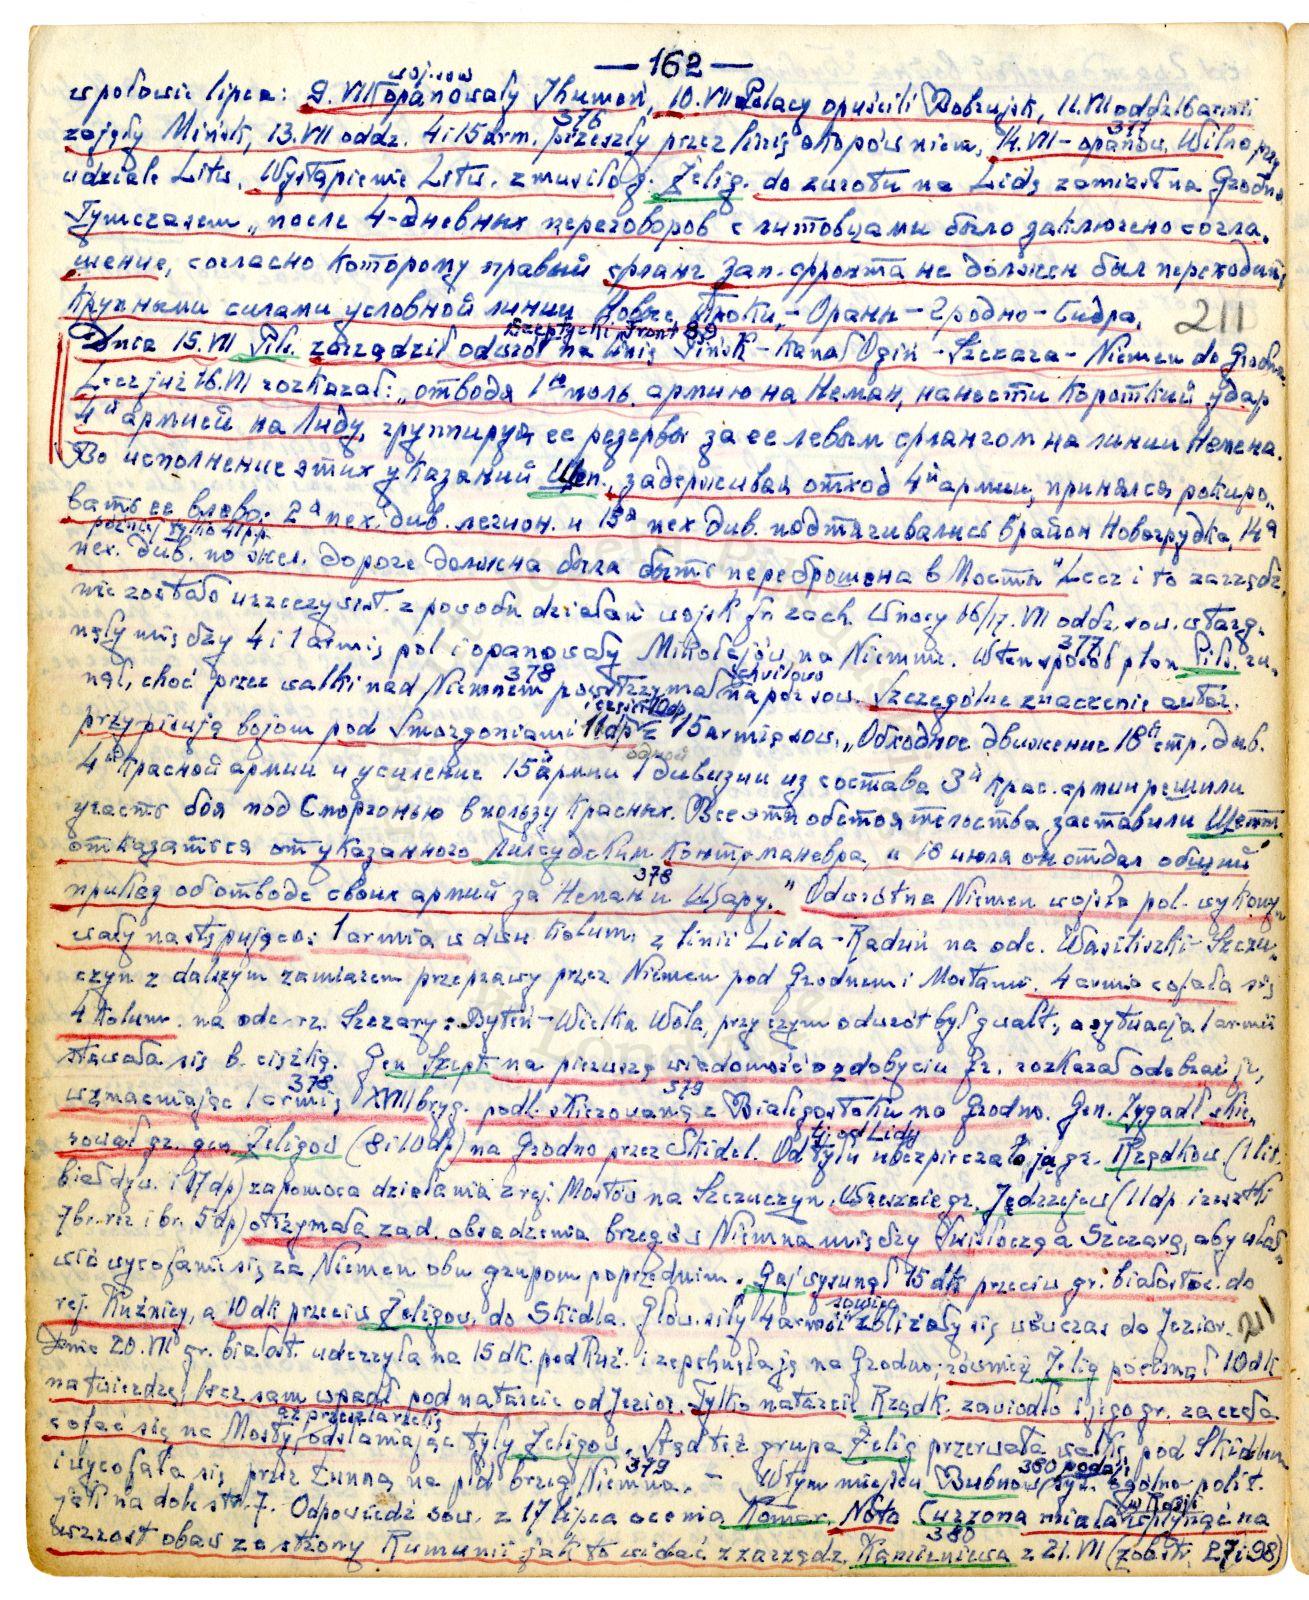 — 162 —
w połowie lipca: 9.VII woj. sow. opanowały Ihumeń, 10.VII Polacy opuścili Bobrujsk, 11.VII oddz. 16 armii
zajęły Mińsk, 13.VII oddz. 4 i 15 arm. przeszły przez linię okopów niem, 376 14.VII – opanow. Wilno przy 377
udziale Litw. Wystąpienie Litw. zmusiło g. Żelig. do zwrotu na Lidę zamiast na Grodno
Tymczasem „после 4-дневных переговоров с литовцами было заключено согла-
шение, согласно которому правый фланг Зап. фронта не должен был переходить
крупными силами условной линии Новые Троки, – Ораны – Гродно – Сидра.
211
Dnia 15.VII Pił. zarządził odwrót na linię Pińsk – Kanał Ogiń – Szczara – Niemen do Grodna
Szeptycki Front 89
Lecz już 16.VII rozkazał: „отводя 1ю поль. армию на Неман, нанести короткий удар
4й армией на Лиду, группируя ее резервы за ее левым флангом на линии Немена.
Во исполнение этих указаний Шеп., задерживая отход 4й армии, принялся рокиро-
вать ее влево: 2я пех. див. легион. и 15я пех. див. подтягивались в район Новогрудка, 14я
później tylko 41 pp
пех. див. по жел. дороге должна была быть переброшена в Мосты" Lecz i to zarządz.
nie zostało urzeczywist. z powodu działań wojsk fr. zach. W nocy 16/17.VII oddz. sow. wtarg-
nęły między 4 i 1 armię pol i opanowały Mikołajów na Niemnie. 377 W ten sposób plan Pił. ru-
nął, choć przez walki nad Niemnem 378 powstrzymał chwilowo napór sow. Szczególne znaczenie autor.
przypisują bojom pod Smorgoniami 11 dp i części 10 dp z 15 armią sow. „Обходное движение 18й стр. див.
4й Красной армии и усиление 15й армии одной дивизии из состава 3й Крас. армии решили
участь боя под Сморгонью в пользу Красных. Все эти обстоятельства заставили Шепт.
отказаться от указанного Пилсудским контрманевра, и 18 июля он отдал общий
приказ об отводе своих армий за Неман и Щару." 378 Odwrót na Niemen wojska pol. wykony-
wały następująco: 1 armia w dwu kolum. z linii Lida – Raduń na odc. Wasiliszki – Szczu-
czyn z dalszym zamiarem przeprawy przez Niemen pod Grodnem i Mostami. 4 armia cofała się
4 kolum. na odc. rz. Szczary: Byteń – Wielka Wola, przy czym odwrót był gwałt., a sytuacja 1 armii
stawała się b. ciężką. Gen. Szept. na pierwszą wiadomość o zdobyciu Gr. rozkazał odebrać je,
wzmacniając 1 armię 378 XVII bryg. podl. skierowaną z Białegostoku na Grodno. 379 Gen. Zygadł. skie-
rował gr. gen. Żeligow. (8 i 10 dp) na Grodno przez Skidel. Od tyłu tj. od Lidy ubezpieczała ją gr. Rządkow. (1 lit.
białdyw. i 17 dp) za pomocą działania z rej. Mostów na Szczuczyn. Wreszcie gr. Jędrzejew (11 dp i resztki
7 br. rez i br. 5 dp) otrzymała zad. obsadzenia brzegów Niemna między Świsłoczą a Szczarą, aby ułat-
wić wycofanie się za Niemen obu grupom poprzednim. Gaj wysunął 15 dk przeciw gr. białostoc. do
rej. Kuźnicy, a 10 dk przeciw Żeligow. do Skidla. Głów. siły 4 armii sowiec. zbliżały się wówczas do Jezior. 211
Dnia 20.VII gr. białost. uderzyła na 15 dk. pod Kuź. i zepchnęła ją na Grodno; również Żelig pocisnął 10 dk
na twierdzę, lecz sam wpadł pod natarcie od Jezior. Tylko natarcie Rządk. zawiodło i jego gr. zaczęła
cofać się na Mosty, odsłaniając tyły Żeligow. Stąd też grupa Żelig przerwała walkę pod Skidlem
i wycofała się przez Łunną na płd brzeg Niemna. 379 – W tym miejscu Bubnow 380 podaje syt. ogólno-polit.
jak na dole str. 7. Odpowiedź sow. z 17 lipca ocenia Komar. Nota Curzona miała wpłynąć w Rosji na
wzrost obaw ze strony Rumunii jak to widać z zarządz. 380 Kamieniewa z 21.VII (zob str. 27 i 98)